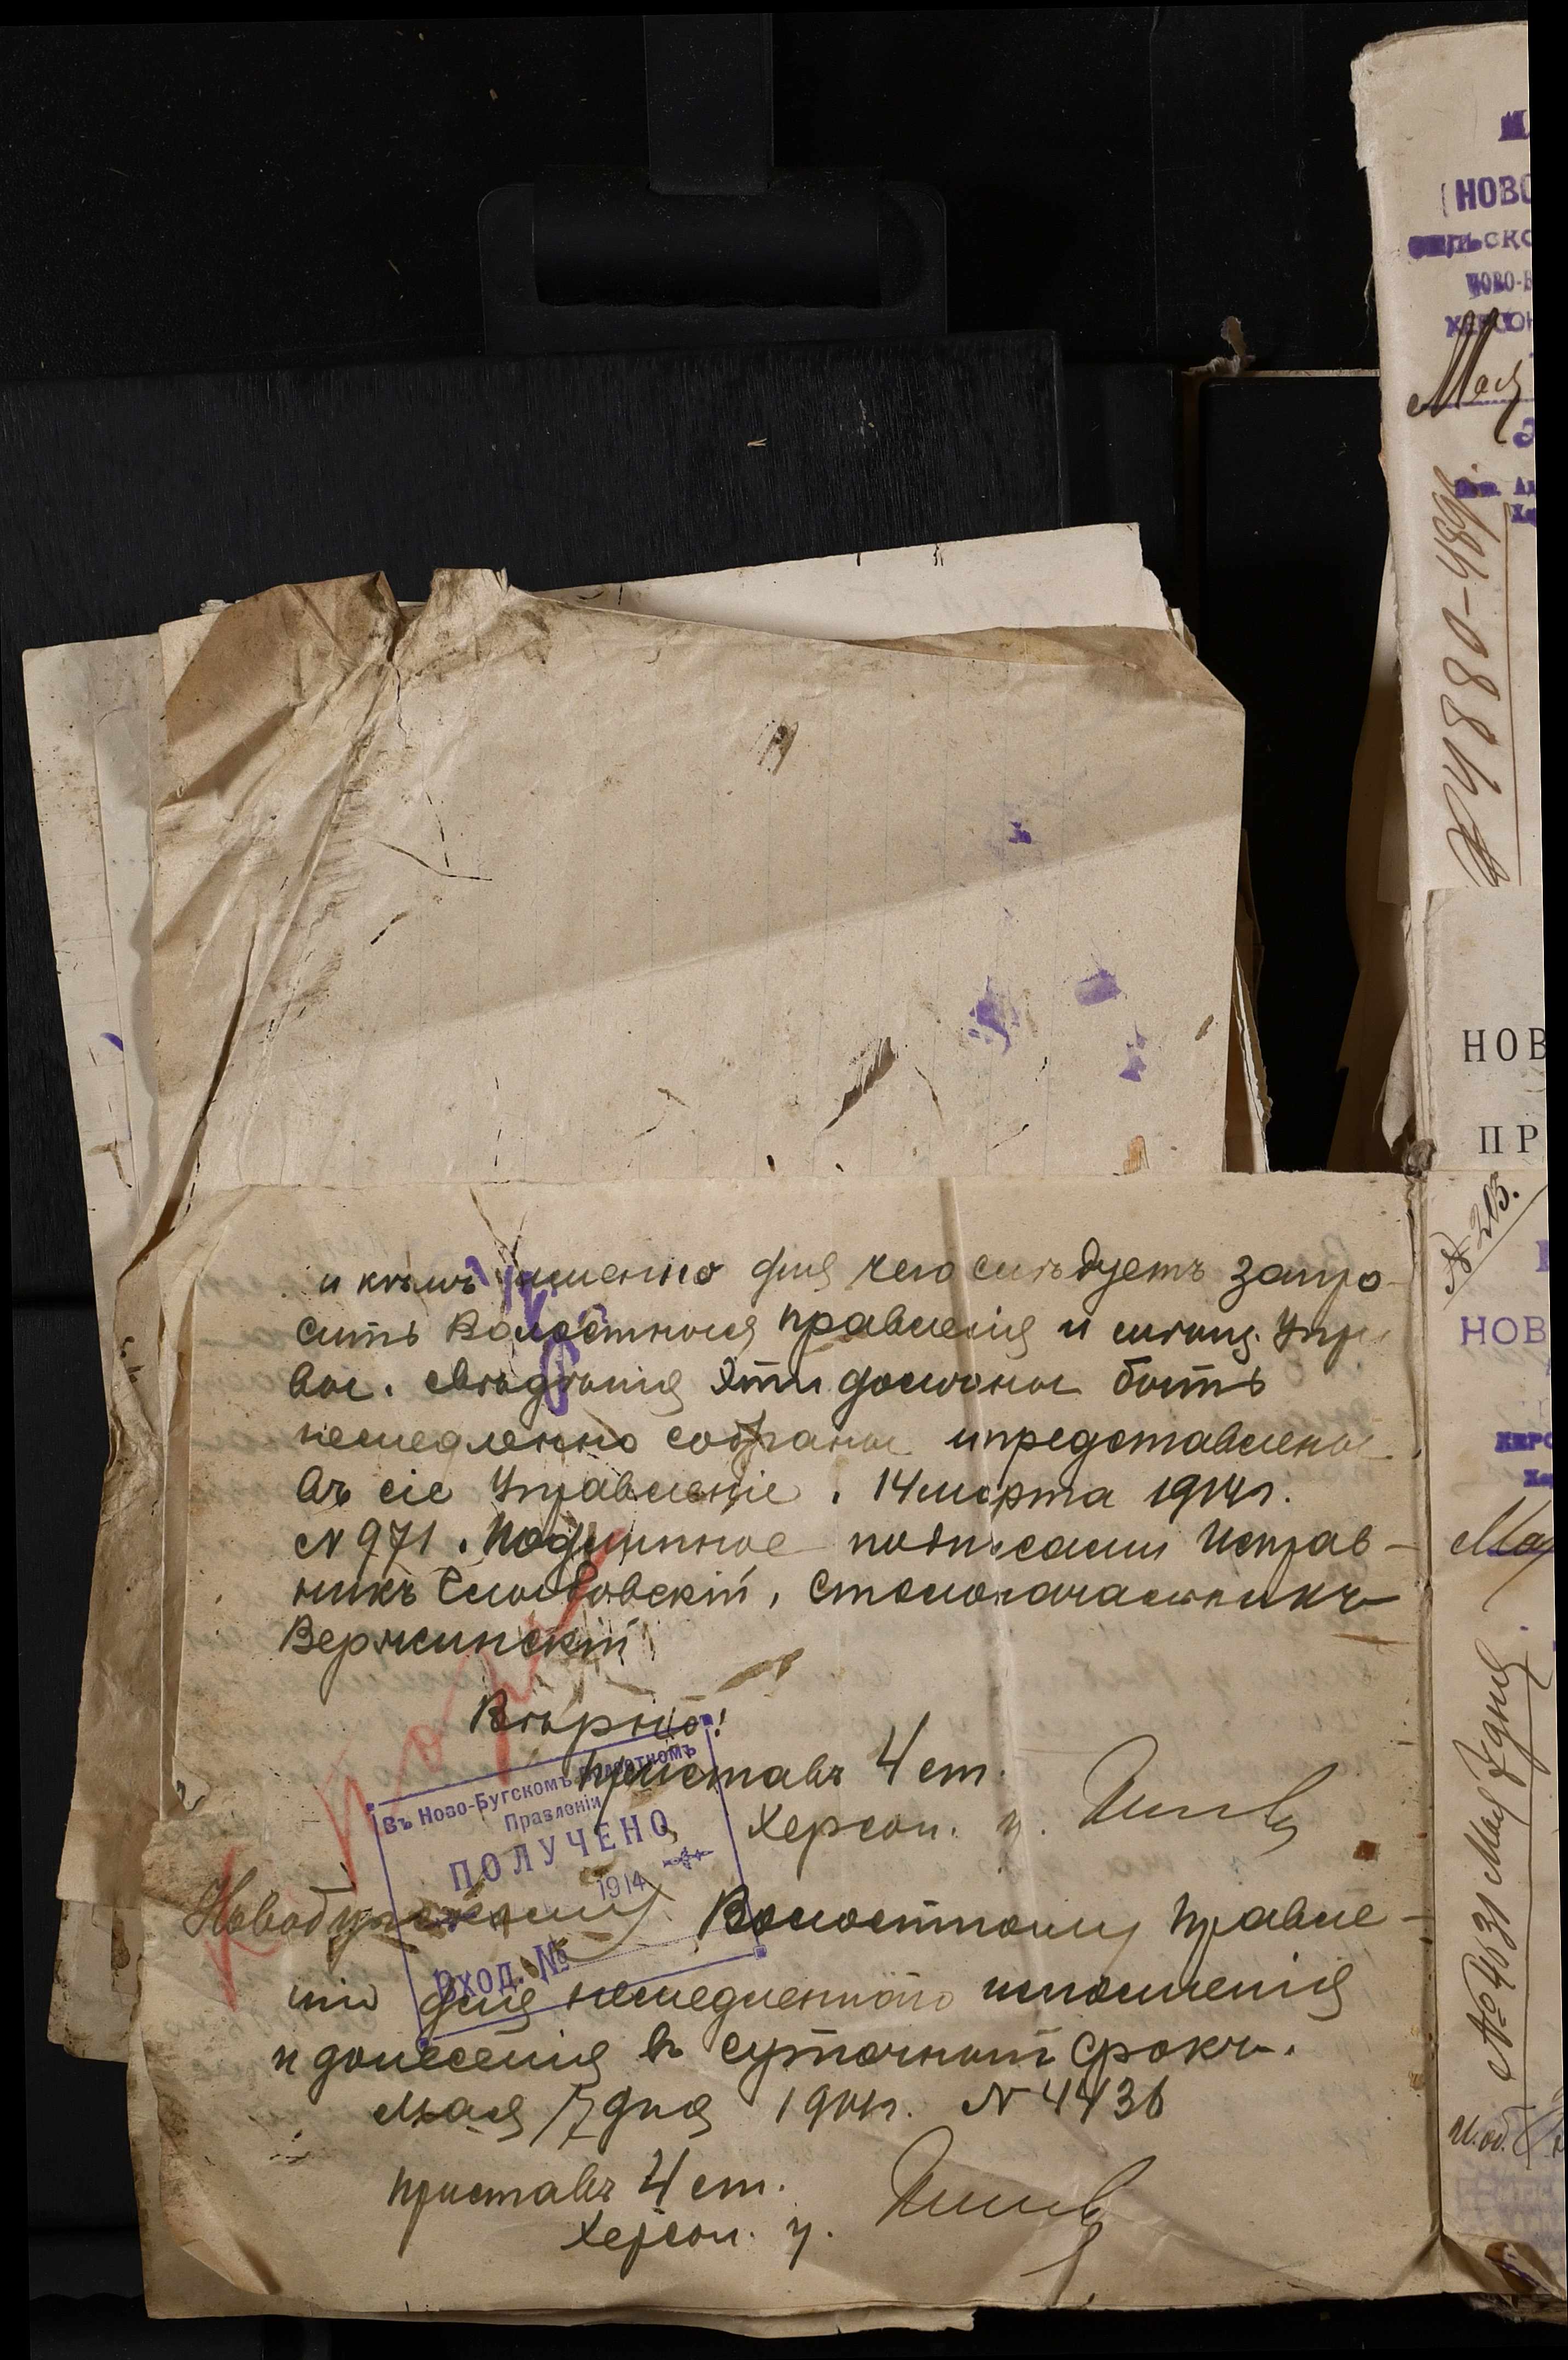 и кѣмъ именно для чего слѣдуетъ запро-
сить Волостныя правленія и мѣщ. Упра
вы. Свѣдѣнія эти должны быть
немедленно собраны и представлены
въ сіе Управленіе. 14 марта 1914г.
N 971. Подлинное подписали Исправ-
никъ, Столоначальникъ
Вержинскій
Вѣрно!
Приставъ 4 ст.
Херсон. у.
Въ Ново-Бугскомъ Волостномъ
Правленіи
ПОЛУЧЕНО
1914
Вход. №
Новобугскому Волостному Правле-
нію для немедленнаго исполненія
и донесенія въ суточный срокъ.
Мая 17 дня 1914г. N 4436
Приставъ 4 ст.
Херсон. у.
Копія
(НОВО
СЕЛЬСКО
НОВО-Б
ХЕРСОН
Мая
№ 4880-4896
НОВ
ПР
№ 215.
НОВ
ХЕРС
Мая
№ 4631 Мая 7 дня
И. об.